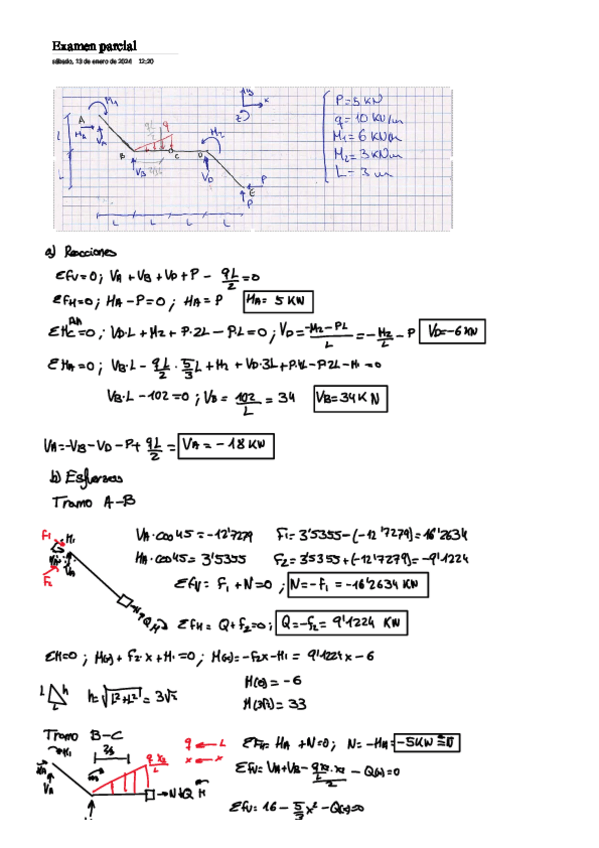 Examen parcial
sábado, 13 de enero de 2024 12:20
M₁
A
HA
VA
L
L
B
VB
qL/2
q
2/3L
C
D
M₂
VD
E
P
P
y
x
z
L L L L
P = 5 KN
q = 10 KN/m
M₁ = 6 KNm
M₂ = 3 KNm
L = 3 m
a) Reacciones
ΣFv=0; VA + VB + VD + P - qL/2 = 0
ΣFH=0; HA - P = 0; HA = P HA = 5 KN
ΣMC=0; VD·L + M2 + P·2L - P·L = 0; VD = -M2-PL/L = -M2/L - P VD=-6 KN
ΣMA=0; VB·L - qL/2 · 5/3 L + M2 + VD·3L + P·4L - P·2L - M1 = 0
VB·L - 102 = 0; VB = 102/L = 34 VB = 34 KN
VA = -VB - VD - P + qL/2 = VA = -18 KN
b) Esfuerzos
Tramo A-B
F1 M1
VA
F2
N
Q M
VA·cos45 = -12'7279 F1 = 3'5355 - (-12'7279) = 16'2634
HA·cos45 = 3'5355 F2 = 3'5355 + (-12'7279) = -9'1224
ΣFv = F1 + N = 0; N = -F1 = -16'2634 KN
ΣFH = Q + F2 = 0; Q = -F2 = 9'1224 KN
ΣM=0; M(x) + F2·x + M1 = 0; M(x) = -F2x - M1 = 9'1224x - 6
L h L h = √L²+L² = 3√2 M(0) = -6
M(3√2) = 33
Tramo B-C
q ← L
x ← x
ΣFH = HA + N = 0; N = -HA = -5KN
ΣFv = VA + VB - - Q(x) = 0
VA
→N Q M
ΣFv = 16 - 5/3 x² - Q(x) = 0